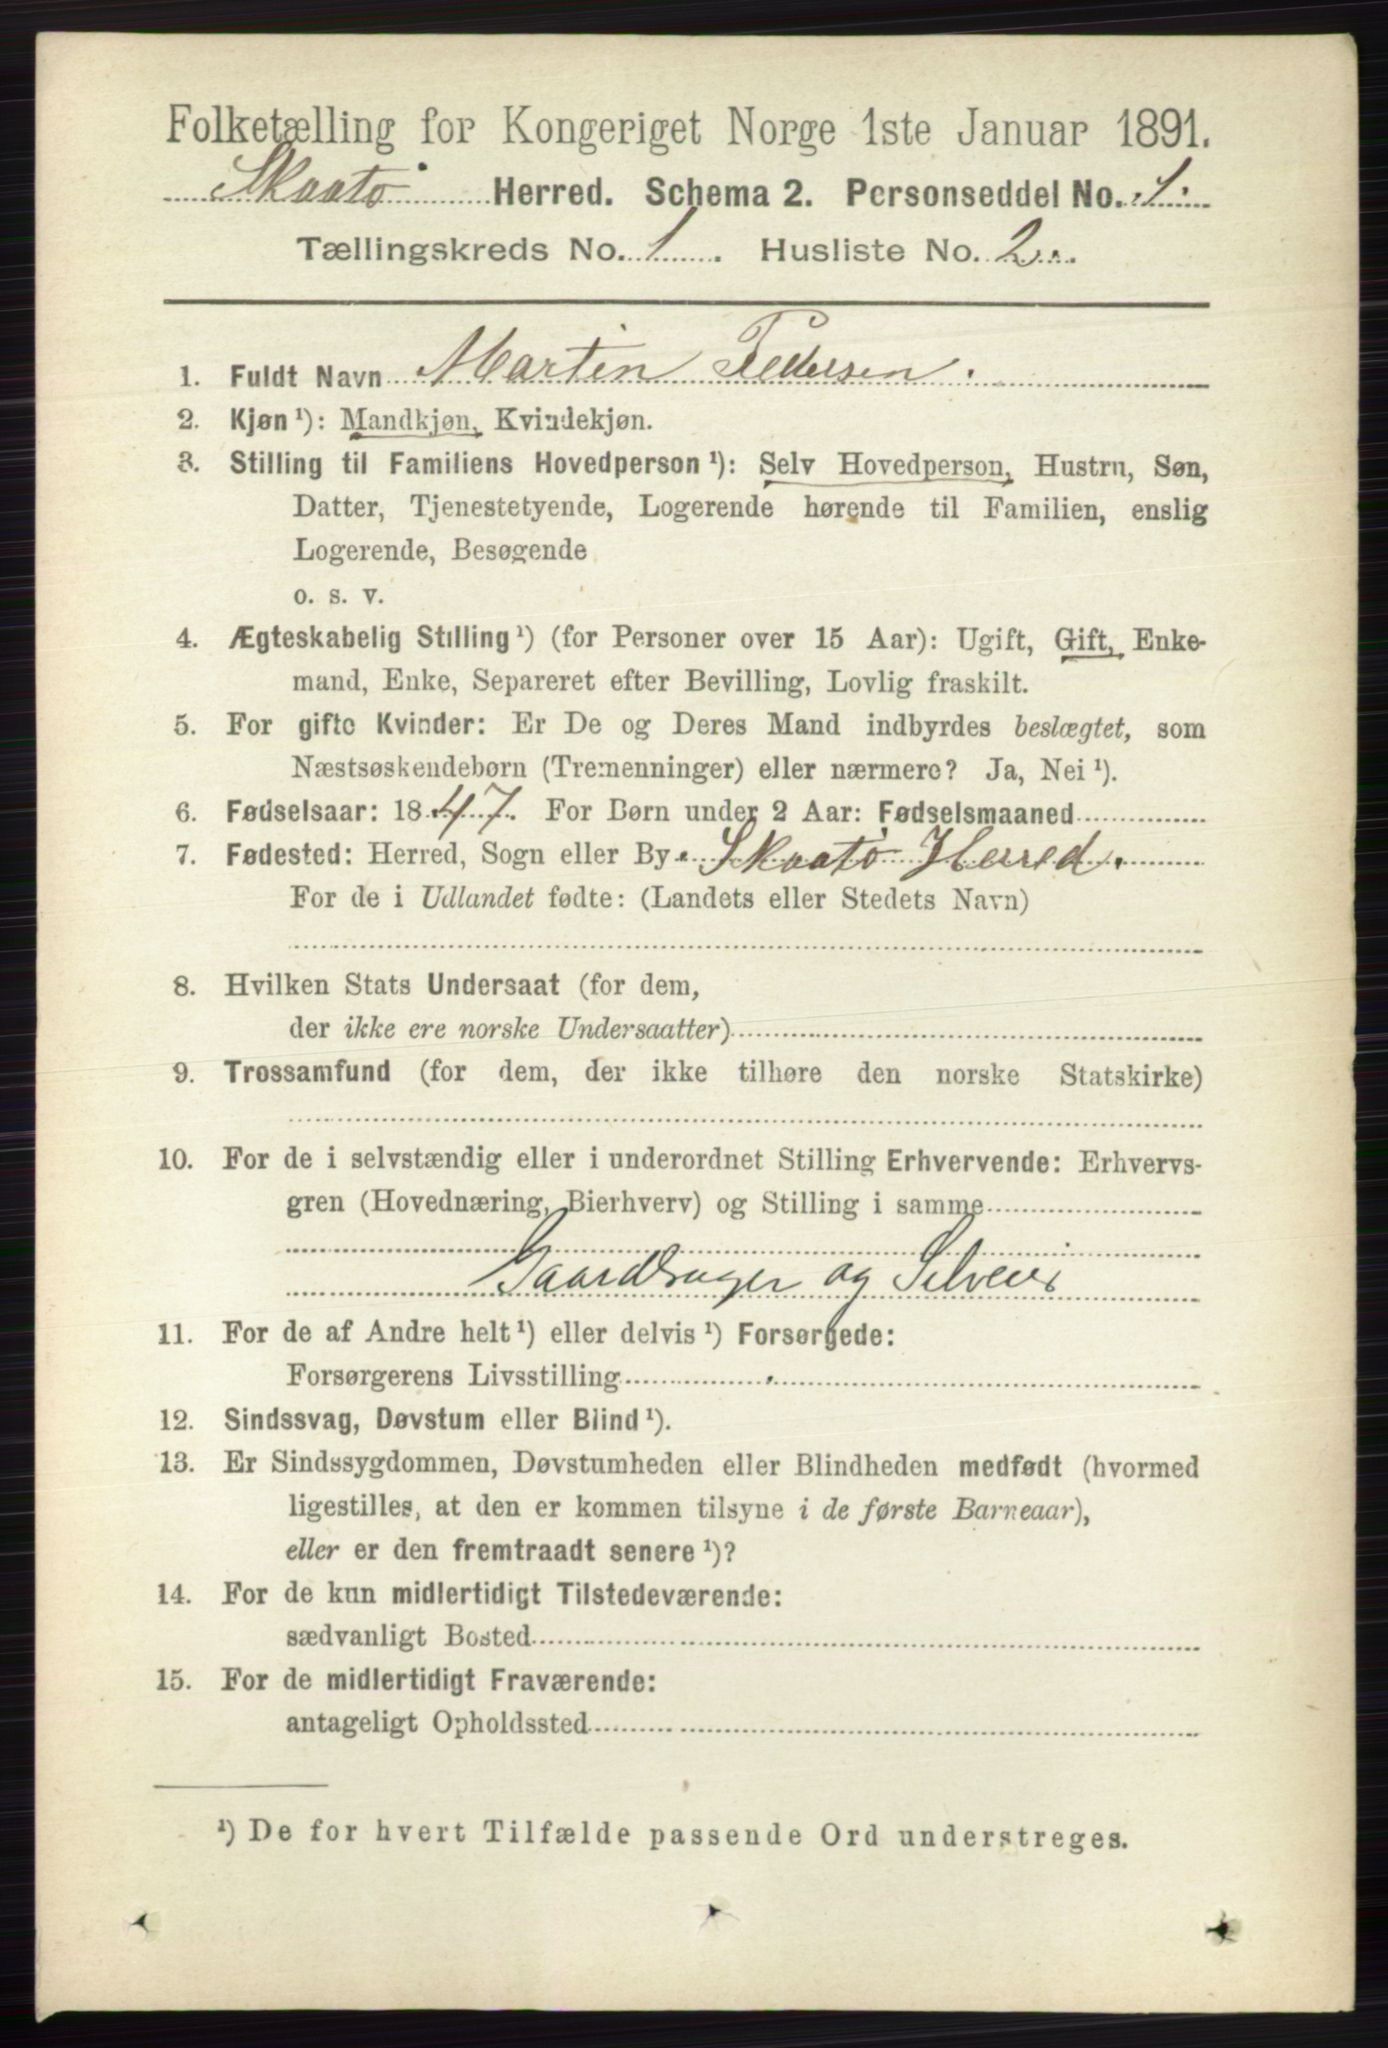 Folketælling for Kongeriget Norge 1ste Januar 1891.
Skaatø Herred. Schema 2. Personseddel No. 1.
Tællingskreds No. 1. Husliste No. 2.
1. Fuldt Navn Martin Pedersen.
2. Kjøn¹): Mandkjøn, Kvindekjøn.
3. Stilling til Familiens Hovedperson¹): Selv Hovedperson, Hustru, Søn,
Datter, Tjenestetyende, Logerende hørende til Familien, enslig
Logerende, Besøgende
o. s. v.
4. Ægteskabelig Stilling¹) (for Personer over 15 Aar): Ugift, Gift, Enke-
mand, Enke, Separeret efter Bevilling, Lovlig fraskilt.
5. For gifte Kvinder: Er De og Deres Mand indbyrdes beslægtet, som
Næstsøskendebørn (Tremenninger) eller nærmere? Ja, Nei¹).
6. Fødselsaar: 1847. For Børn under 2 Aar: Fødselsmaaned
7. Fødested: Herred, Sogn eller By Skaatø Herred.
For de i Udlandet fødte: (Landets eller Stedets Navn)
8. Hvilken Stats Undersaat (for dem,
der ikke ere norske Undersaatter)
9. Trossamfund (for dem, der ikke tilhøre den norske Statskirke)
10. For de i selvstændig eller i underordnet Stilling Erhvervende: Erhvervs-
gren (Hovednæring, Bierhverv) og Stilling i samme
Gaardbruger og Selveier
11. For de af Andre helt¹) eller delvis¹) Forsørgede:
Forsørgerens Livsstilling
12. Sindssvag, Døvstum eller Blind¹).
13. Er Sindssygdommen, Døvstumheden eller Blindheden medfødt (hvormed
ligestilles, at den er kommen tilsyne i de første Barneaar),
eller er den fremtraadt senere¹)?
14. For de kun midlertidigt Tilstedeværende:
sædvanligt Bosted
15. For de midlertidigt Fraværende:
antageligt Opholdssted
¹) De for hvert Tilfælde passende Ord understreges.